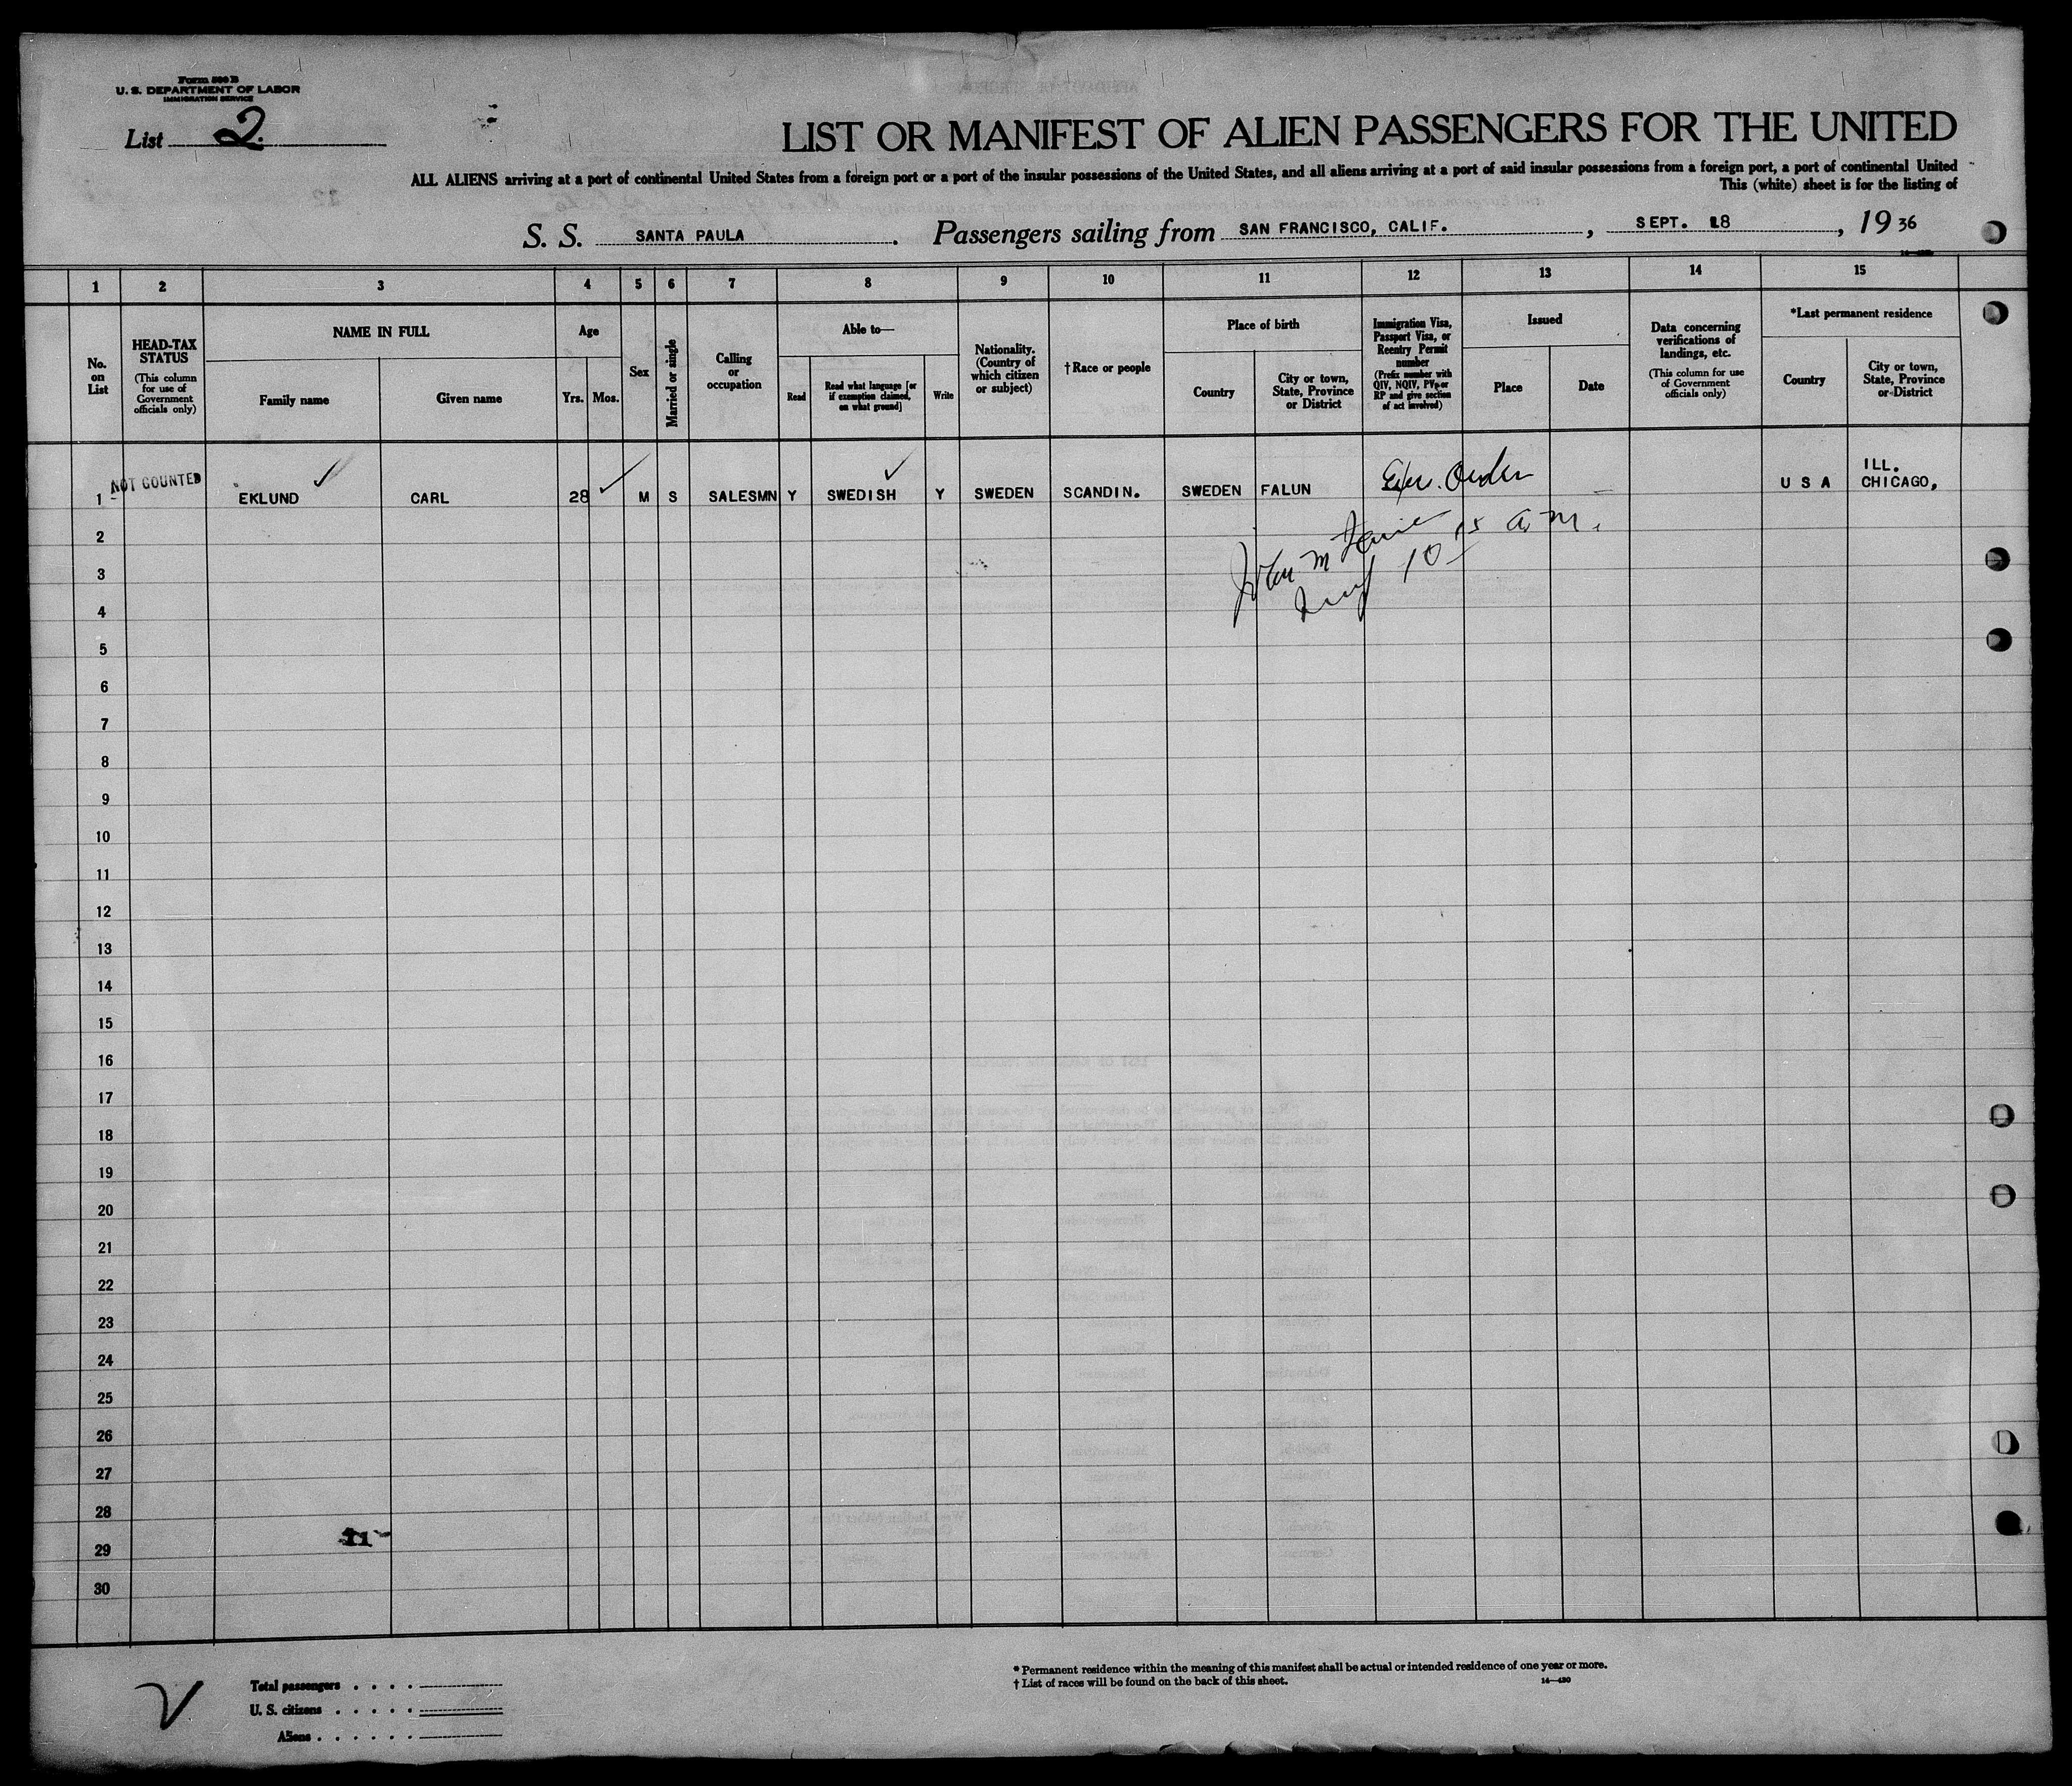 Form 500 B
U. S. DEPARTMENT OF LABOR
IMMIGRATION SERVICE
List 2.
LIST OR MANIFEST OF ALIEN PASSENGERS FOR THE UNITED
ALL ALIENS arriving at a port of continental United States from a foreign port or a port of the insular possessions of the United States, and all aliens arriving at a port of said insular possessions from a foreign port, a port of continental United
This (white) sheet is for the listing of
S. S. SANTA PAULA . Passengers sailing from SAN FRANCISCO, CALIF. , SEPT. 18 , 19 36
1 2 3 4 5 6 7 8 9 10 11 12 13 14 15
No. on List
HEAD-TAX STATUS
(This column for use of Government officials only)
NAME IN FULL
Family name
Given name
Age
Yrs. Mos.
Sex
Married or single
Calling or occupation
Able to—
Read
Read what language [or if exemption claimed, on what ground]
Write
Nationality. (Country of which citizen or subject)
†Race or people
Place of birth
Country
City or town, State, Province or District
Immigration Visa, Passport Visa, or Reentry Permit number
(Prefix number with QIV, NQIV, PV, or RP and give section of act involved)
Issued
Place
Date
Data concerning verifications of landings, etc.
(This column for use of Government officials only)
*Last permanent residence
Country
City or town, State, Province or District
NOT COUNTED
ILL.
1 EKLUND CARL 28 M S SALESMN Y SWEDISH Y SWEDEN SCANDIN. SWEDEN FALUN Exec. Order U S A CHICAGO,
10 15 a.m.
2
3
4
5
6
7
8
9
10
11
12
13
14
15
16
17
18
19
20
21
22
23
24
25
26
27
28
11
29
30
Total passengers . . . .
U. S. citizens . . . . .
Aliens . . . . . .
* Permanent residence within the meaning of this manifest shall be actual or intended residence of one year or more.
† List of races will be found on the back of this sheet.
14—430